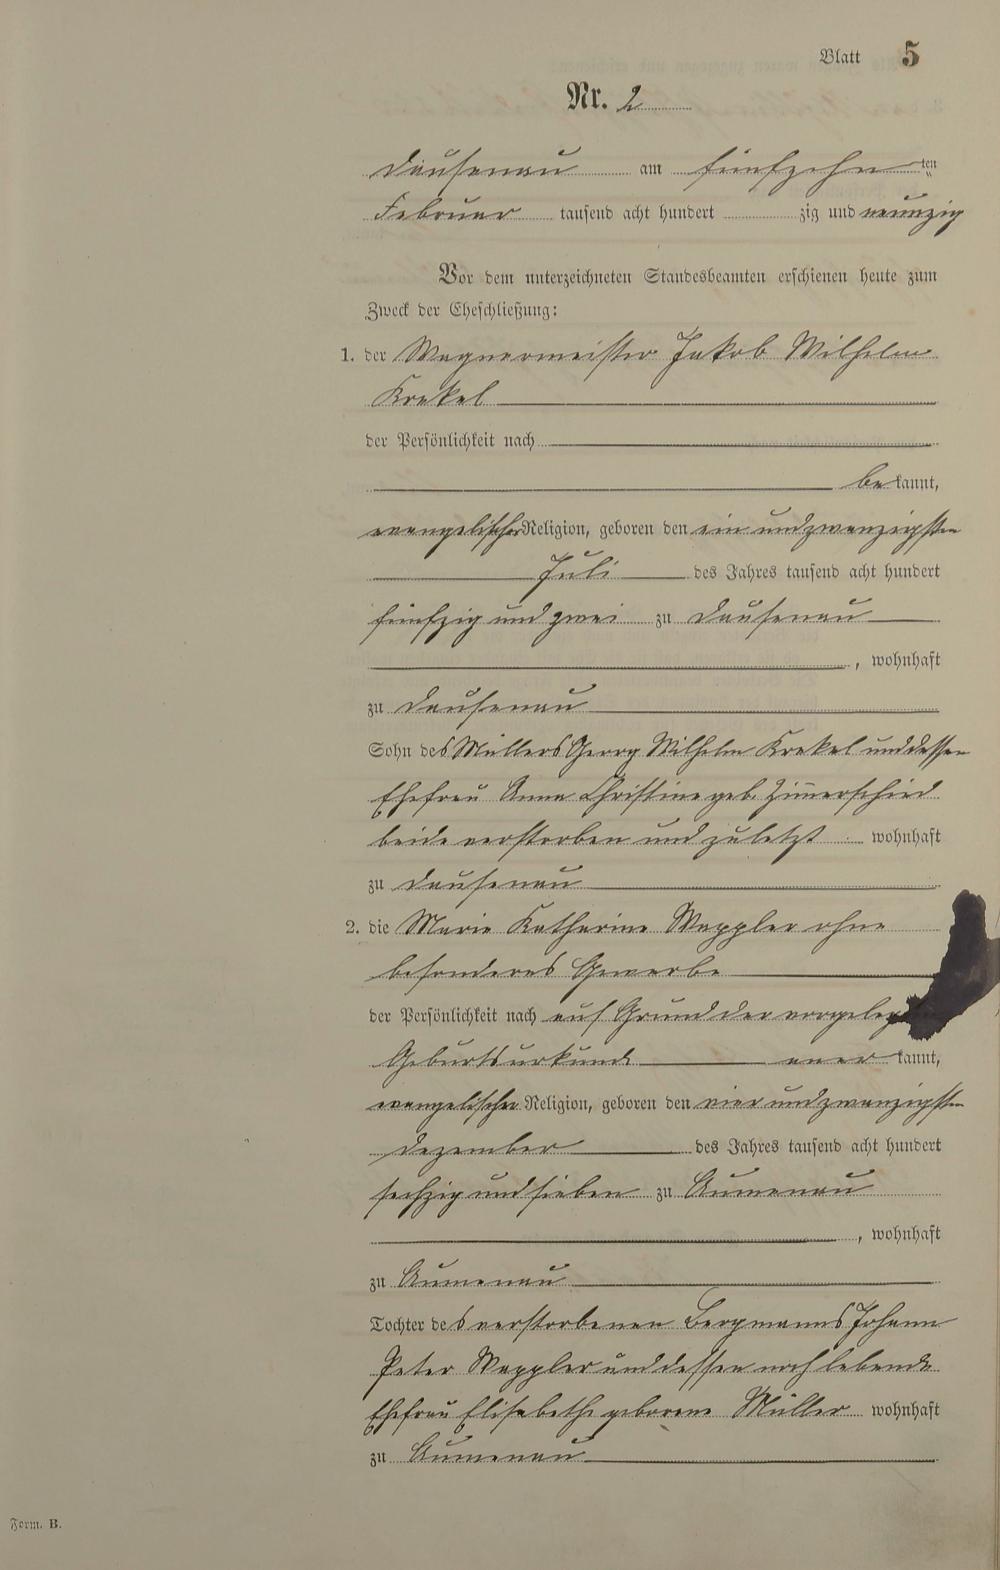 Blatt 5
Nr. 2
Dausenau am fünfzehn ten
Februar tausend acht hundert zig und neunzig
Vor dem unterzeichneten Standesbeamten erschienen heute zum
Zweck der Eheschließung:
1. der Wagnermeister Jakob Wilhelm
Krekel
der Persönlichkeit nach
be kannt,
evangelischer Religion, geboren den ein und zwanzigsten
Juli des Jahres tausend acht hundert
fünfzig und zwei zu Dausenau
, wohnhaft
zu Dausenau
Sohn des Müllers Georg Wilhelm Krekel und dessen
Ehefrau Anna Christine geb. Zim̄erschied
beide verstorben und zuletzt wohnhaft
zu Dausenau
2. die Marie Katharine Wappler ohne
besonderes Gewerbe
der Persönlichkeit nach auf Grund der
Geburtsurkunde aner kannt,
evangelischer Religion, geboren den vier und zwanzigsten
Dezember des Jahres tausend acht hundert
sechzig und sieben zu Aumenau
, wohnhaft
zu Aumenau
Tochter des verstorbenen Bergmanns Johann
Peter Wappler und dessen noch lebende
Ehefrau Elisabethe geborene Müller wohnhaft
zu Aumenau
Form. B.